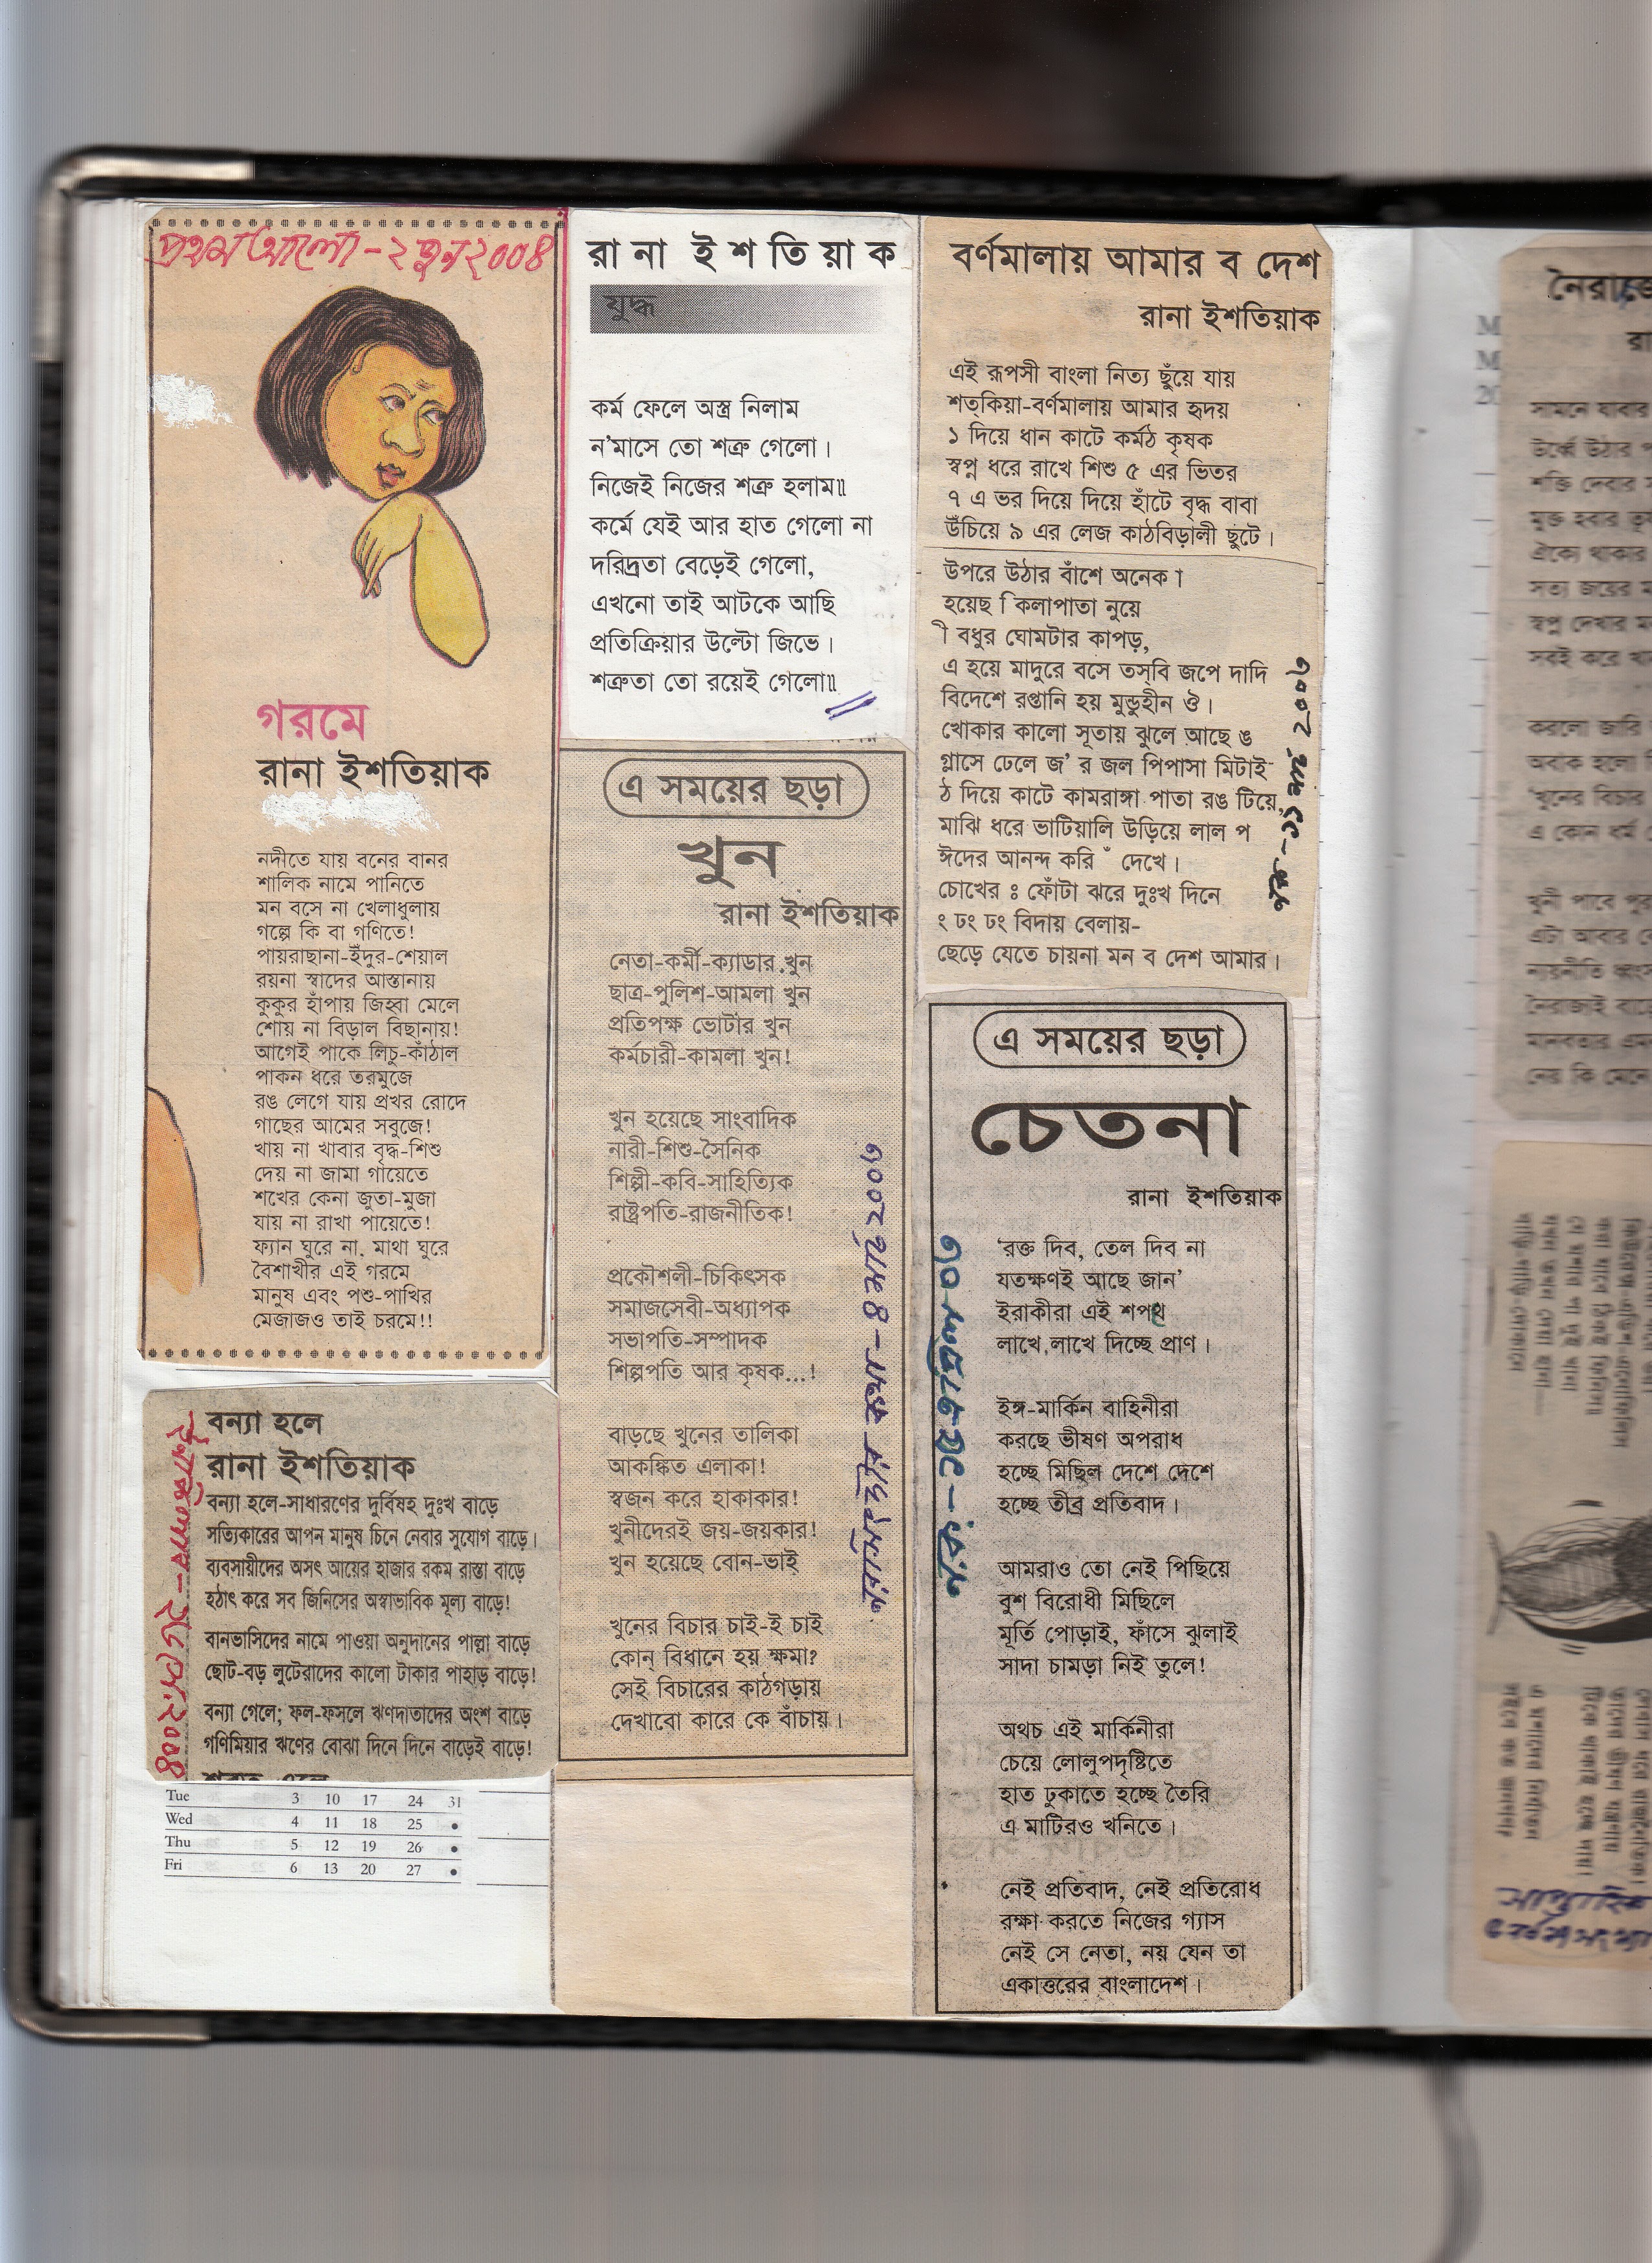 প্রথম আলো - ২ জুন ২০০৪
গরমে
রানা ইশতিয়াক
নদীতে যায় বনের বানর
শালিক নামে পানিতে
মন বসে না খেলাধুলায়
গল্পে কি বা গণিতে!
পায়রাছানা-ইঁদুর-শেয়াল
রয়না স্বাদের আস্তানায়
কুকুর হাঁপায় জিহ্বা মেলে
শোয় না বিড়াল বিছানায়!
আগেই পাকে লিচু-কাঁঠাল
পাকন ধরে তরমুজে
রঙ লেগে যায় প্রখর রোদে
গাছের আমের সবুজে!
খায় না খাবার বৃদ্ধ-শিশু
দেয় না জামা গায়েতে
শখের কেনা জুতা-মুজা
যায় না রাখা পায়েতে!
ফ্যান ঘুরে না, মাথা ঘুরে
বৈশাখীর এই গরমে
মানুষ এবং পশু-পাখির
মেজাজও তাই চরমে!!
বন্যা হলে
রানা ইশতিয়াক
বন্যা হলে-সাধারণের দুর্বিষহ দুঃখ বাড়ে
সত্যিকারের আপন মানুষ চিনে নেবার সুযোগ বাড়ে।
ব্যবসায়ীদের অসৎ আয়ের হাজার রকম রাস্তা বাড়ে
হঠাৎ করে সব জিনিসের অস্বাভাবিক মূল্য বাড়ে!
বানভাসিদের নামে পাওয়া অনুদানের পাল্লা বাড়ে
ছোট-বড় লুটেরাদের কালো টাকার পাহাড় বাড়ে!
বন্যা গেলে; ফল-ফসলে ঋণদাতাদের অংশ বাড়ে
গণিমিয়ার ঋণের বোঝা দিনে দিনে বাড়েই বাড়ে!
Tue 3 10 17 24 31
Wed 4 11 18 25 •
Thu 5 12 19 26 •
Fri 6 13 20 27 •
রা না ই শ তি য়া ক
যুদ্ধ
কর্ম ফেলে অস্ত্র নিলাম
ন'মাসে তো শত্রু গেলো।
নিজেই নিজের শত্রু হলাম॥
কর্মে যেই আর হাত গেলো না
দরিদ্রতা বেড়েই গেলো,
এখনো তাই আটকে আছি
প্রতিক্রিয়ার উল্টো জিভে।
শত্রুতা তো রয়েই গেলো॥
এ সময়ের ছড়া
খুন
রানা ইশতিয়াক
নেতা-কর্মী-ক্যাডার খুন
ছাত্র-পুলিশ-আমলা খুন
প্রতিপক্ষ ভোটার খুন
কর্মচারী-কামলা খুন!
খুন হয়েছে সাংবাদিক
নারী-শিশু-সৈনিক
শিল্পী-কবি-সাহিত্যিক
রাষ্ট্রপতি-রাজনীতিক!
প্রকৌশলী-চিকিৎসক
সমাজসেবী-অধ্যাপক
সভাপতি-সম্পাদক
শিল্পপতি আর কৃষক...!
বাড়ছে খুনের তালিকা
আকঙ্কিত এলাকা!
স্বজন করে হাকাকার!
খুনীদেরই জয়-জয়কার!
খুন হয়েছে বোন-ভাই
খুনের বিচার চাই-ই চাই
কোন্ বিধানে হয় ক্ষমা?
সেই বিচারের কাঠগড়ায়
দেখাবো কারে কে বাঁচায়।
নরসিংদীর কথা - ৪ মার্চ ২০০৩
বর্ণমালায় আমার ব দেশ
রানা ইশতিয়াক
এই রূপসী বাংলা নিত্য ছুঁয়ে যায়
শত্কিয়া-বর্ণমালায় আমার হৃদয়
১ দিয়ে ধান কাটে কর্মঠ কৃষক
স্বপ্ন ধরে রাখে শিশু ৫ এর ভিতর
৭ এ ভর দিয়ে দিয়ে হাঁটে বৃদ্ধ বাবা
উঁচিয়ে ৯ এর লেজ কাঠবিড়ালী ছুটে।
উপরে উঠার বাঁশে অনেক ʼ
হয়েছ ি কলাপাতা নুয়ে
ী বধুর ঘোমটার কাপড়,
এ হয়ে মাদুরে বসে তস্‌বি জপে দাদি
বিদেশে রপ্তানি হয় মুন্ডুহীন ঔ।
খোকার কালো সূতায় ঝুলে আছে ঙ
গ্লাসে ঢেলে জ' র জল পিপাসা মিটাই
ঠ দিয়ে কাটে কামরাঙ্গা পাতা রঙ টিয়ে,
মাঝি ধরে ভাটিয়ালি উড়িয়ে লাল প
ঈদের আনন্দ করি ঁ দেখে।
চোখের ঃ ফোঁটা ঝরে দুঃখ দিনে
ং ঢং ঢং বিদায় বেলায়-
ছেড়ে যেতে চায়না মন ব দেশ আমার।
এ সময়ের ছড়া
চেতনা
রানা ইশতিয়াক
'রক্ত দিব, তেল দিব না
যতক্ষণই আছে জান'
ইরাকীরা এই শপথ
লাখে লাখে দিচ্ছে প্রাণ।
ইঙ্গ-মার্কিন বাহিনীরা
করছে ভীষণ অপরাধ
হচ্ছে মিছিল দেশে দেশে
হচ্ছে তীব্র প্রতিবাদ।
আমরাও তো নেই পিছিয়ে
বুশ বিরোধী মিছিলে
মূর্তি পোড়াই, ফাঁসে ঝুলাই
সাদা চামড়া নিই তুলে!
অথচ এই মার্কিনীরা
চেয়ে লোলুপদৃষ্টিতে
হাত ঢুকাতে হচ্ছে তৈরি
এ মাটিরও খনিতে।
নেই প্রতিবাদ, নেই প্রতিরোধ
রক্ষা করতে নিজের গ্যাস
নেই সে নেতা, নয় যেন তা
একাত্তরের বাংলাদেশ।
সামনে যাবার
উর্ধ্বে উঠার
শক্তি দেবার
মুক্ত হবার
ঐক্যে থাকার
সত্য জয়ের
স্বপ্ন দেখার
সবই করে
করলো জারি
অবাক হলো
'খুনের বিচার
এ কোন ধর্ম
খুনী পাবে
এটা আবার
ন্যায়নীতি
নৈরাজ্যই
মানবতার
নেয় কি মেনে